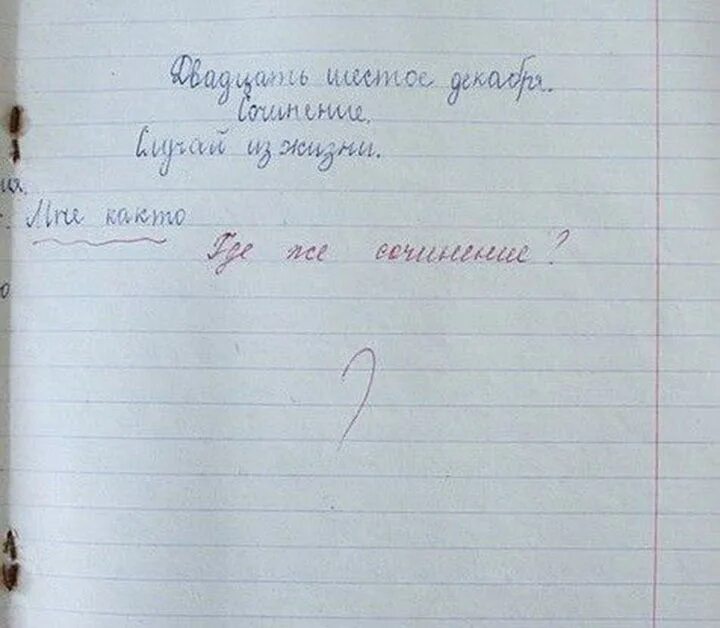 Двадцать шестое декабря.
Сочинение.
Случай из жизни.
Мне както
Где же сочинение?
?